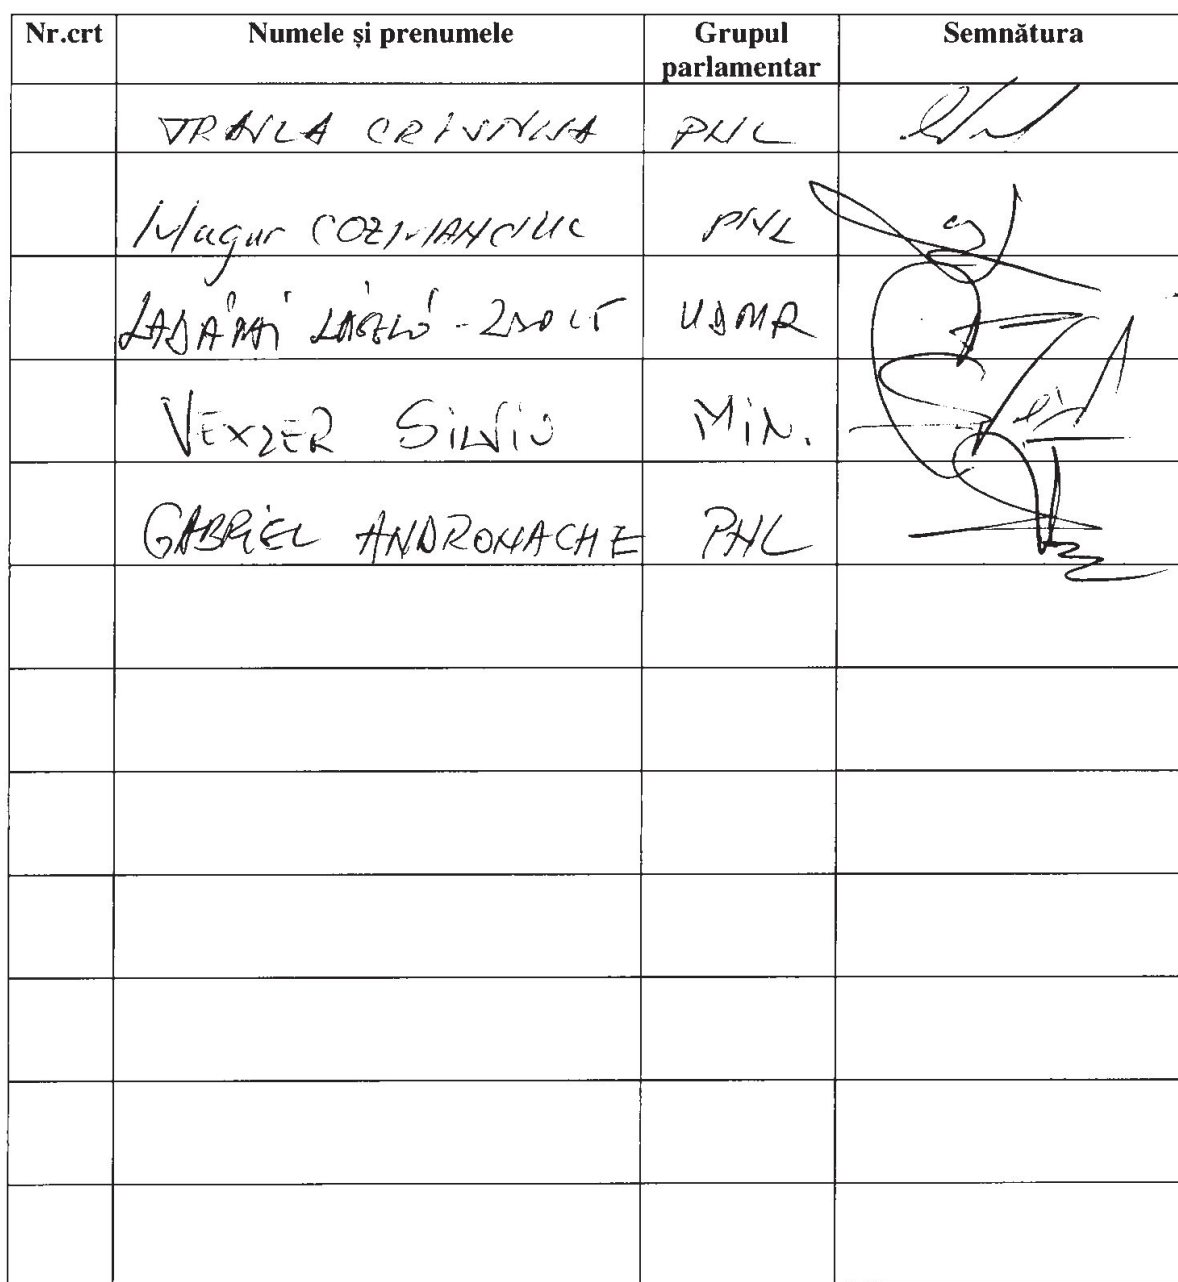 Nr.crt Numele și prenumele Grupul parlamentar Semnătura
TRAILA CRISTINA PNL
Magur COZMANCIUC PNL
LADÁNYI LÁSZLÓ-ZSOLT UDMR
VEXLER SILVIU MIN.
GABRIEL ANDRONACHE PNL